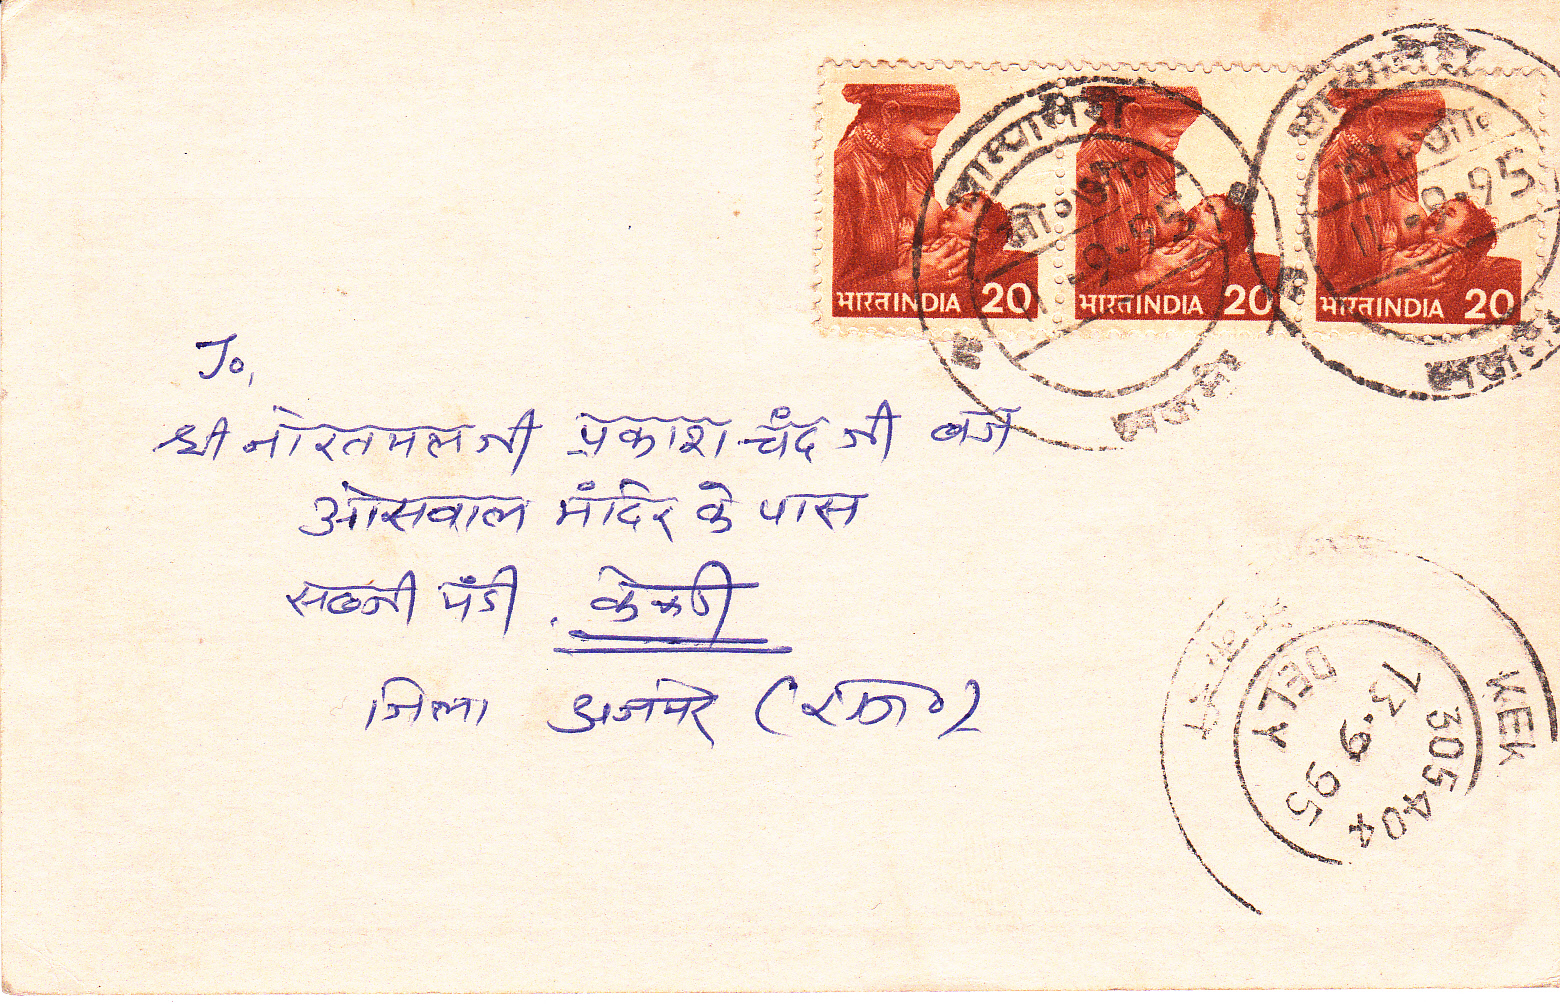 भारत INDIA 20
भारत INDIA 20
भारत INDIA 20
11-9-95
11-9-95
To,
श्री नोरतमल जी प्रकाश चंद जी
ओसवाल मंदिर के पास
सब्जी मंडी . केकड़ी
जिला अजमेर (राज०)
KEK
305404
DELY
13.9.95